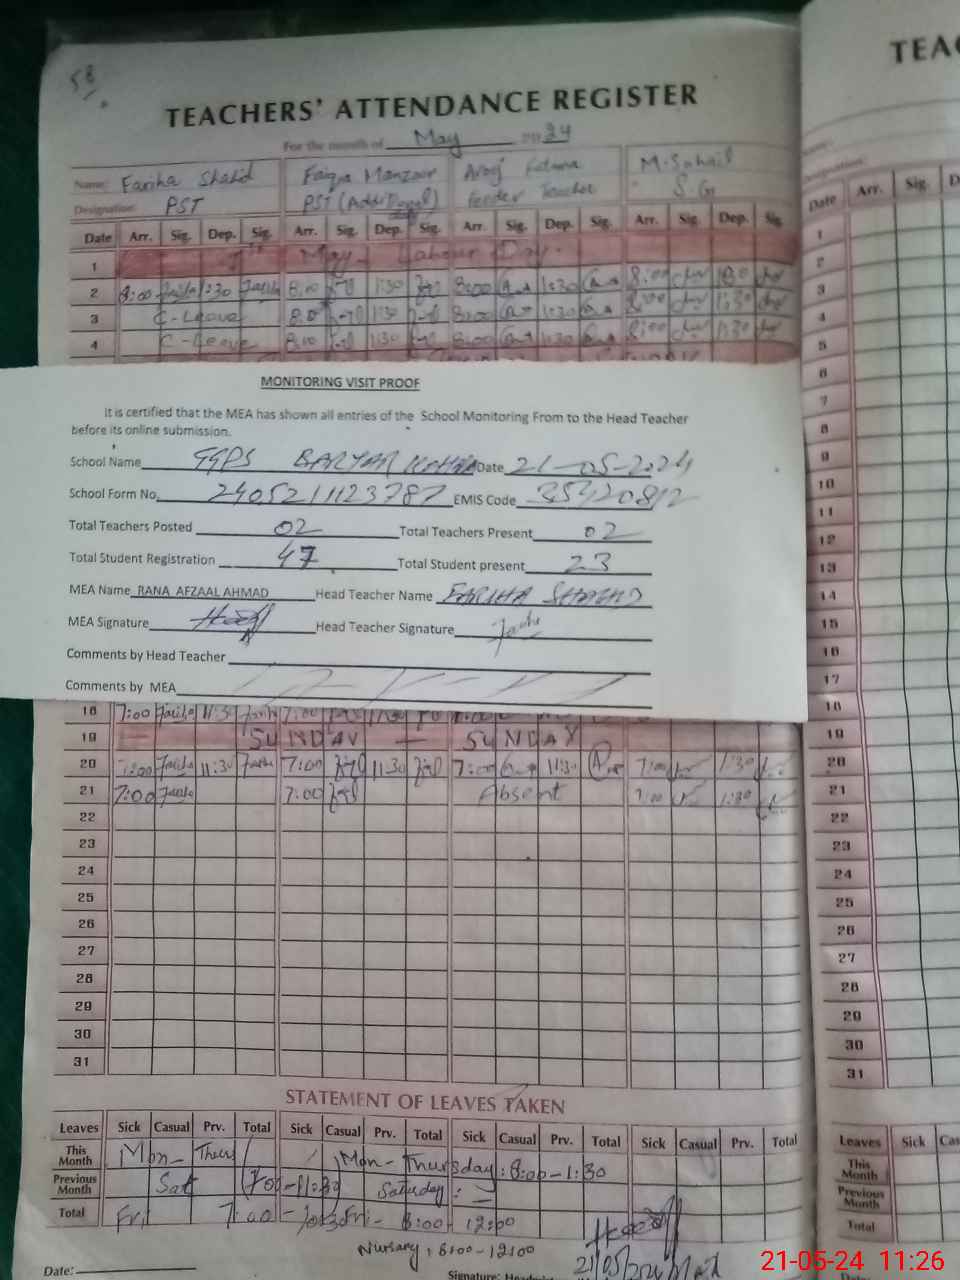 58
TEACHERS' ATTENDANCE REGISTER
TEAC
For the month of May 2024
Name: Fariha Shahid Faiqa Manzoor Arooj Fatima M. Sohail
Designation: PST PST Feeder Teacher S.G
Date Arr. Sig. Dep. Sig. Arr. Sig. Dep. Sig. Arr. Sig. Dep. Sig. Arr. Sig. Dep. Sig.
Date Arr. Sig. D
1 1st May - Labour Day.
2 8:00 Fariha 1:30 Fariha 8:00 1:30 8:00 1:30 8:00 1:30
3 C-Leave 8:00 1:30 8:00 1:30 8:00 1:30
4 C-Leave 8:00 1:30 8:00 1:30 8:00 1:30
MONITORING VISIT PROOF
It is certified that the MEA has shown all entries of the School Monitoring From to the Head Teacher
before its online submission.
School Name GGPS Date 21-05-2024
School Form No. 2405211123787 EMIS Code 35420812
Total Teachers Posted 02 Total Teachers Present 02
Total Student Registration 47 Total Student present 23
MEA Name RANA AFZAAL AHMAD Head Teacher Name FARIHA SHAHID
MEA Signature Head Teacher Signature Fariha
Comments by Head Teacher
Comments by MEA
18 7:00 Fariha 11:30 Fariha 7:00 11:30
19 SUNDAY — SUNDAY
20 7:00 Fariha 11:30 Fariha 7:00 11:30 7:00 11:30 7:00 1:30
21 7:00 Fariha 7:00 Absent 7:00 1:30
22
23
24
25
26
27
28
29
30
31
1
2
3
4
5
6
7
8
9
10
11
12
13
14
15
16
17
18
19
20
21
22
23
24
25
26
27
28
29
30
31
STATEMENT OF LEAVES TAKEN
Leaves Sick Casual Prv. Total Sick Casual Prv. Total Sick Casual Prv. Total Sick Casual Prv. Total
Leaves Sick Cas
This Month Mon - Thurs Mon - Thursday: 8:00 - 1:30
Previous Month Sat 7:00 - 11:30 Saturday: -
Total Fri 7:00 - 10:30 Fri - 8:00 - 12:00
This Month
Previous Month
Total
Nursary: 8:00 - 12:00
21/05/2024
Date:
Signature:
21-05-24 11:26